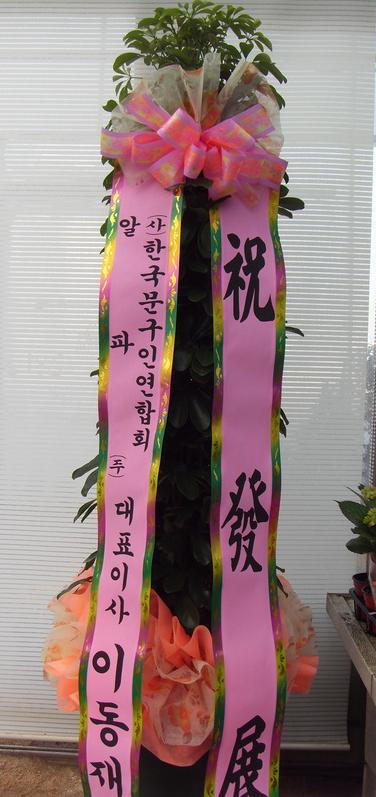 祝發展
(사)한국문구인연합회
알파(주) 대표이사 이동재